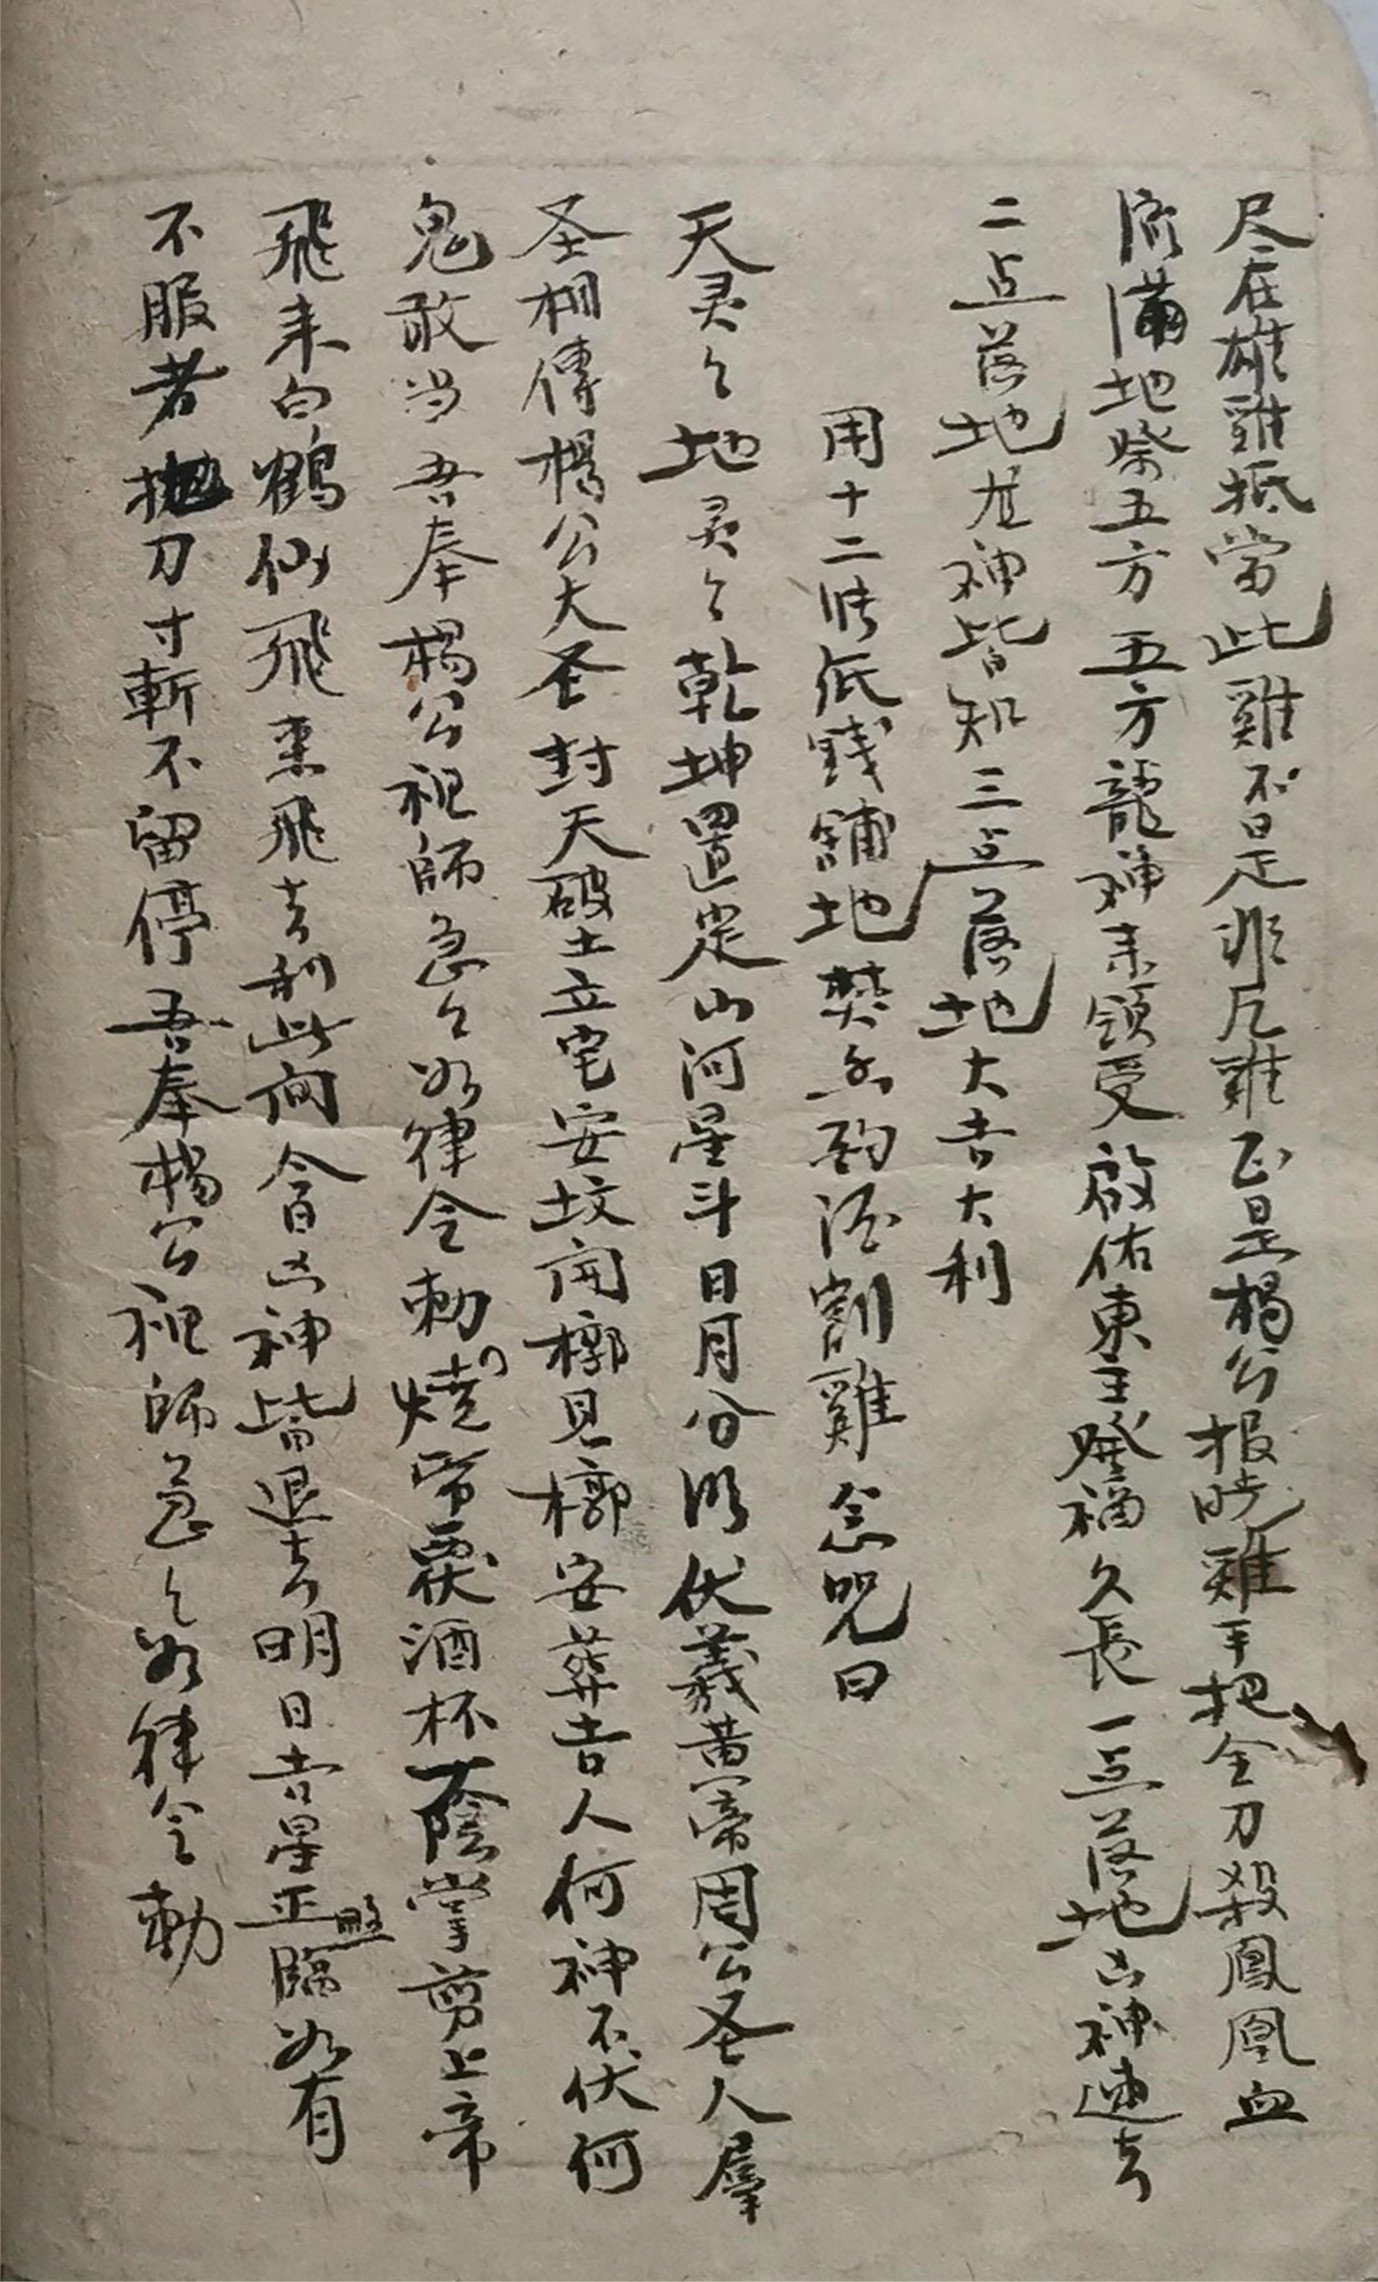 尽在雄雞抵當此雞不是非凡雞正是楊公报時雞手把金刀殺鳳凰血
流满地祭五方五方龍神来領受啟佑東主發福久長一点落地凶神速去
二点落地龙神皆知三点落地大吉大利
用十二张纸錢舖地焚香酌酒割雞念咒曰
天灵々地灵々乾坤置定山河星斗日月分明伏羲黄帝周公圣人羣
圣相傳楊公大圣封天破土立宅安坟開槨見槨安葬吉人何神不伏何
鬼敢当吾奉楊公祖師急々如律令勅燒帋覆酒杯陰掌剪上帝
飛来白鶴仙飛来飛去利此向今日凶神皆退去明日吉星正照臨如有
不服者抛刀寸斬不留停吾奉楊公祖師急々如律令勅